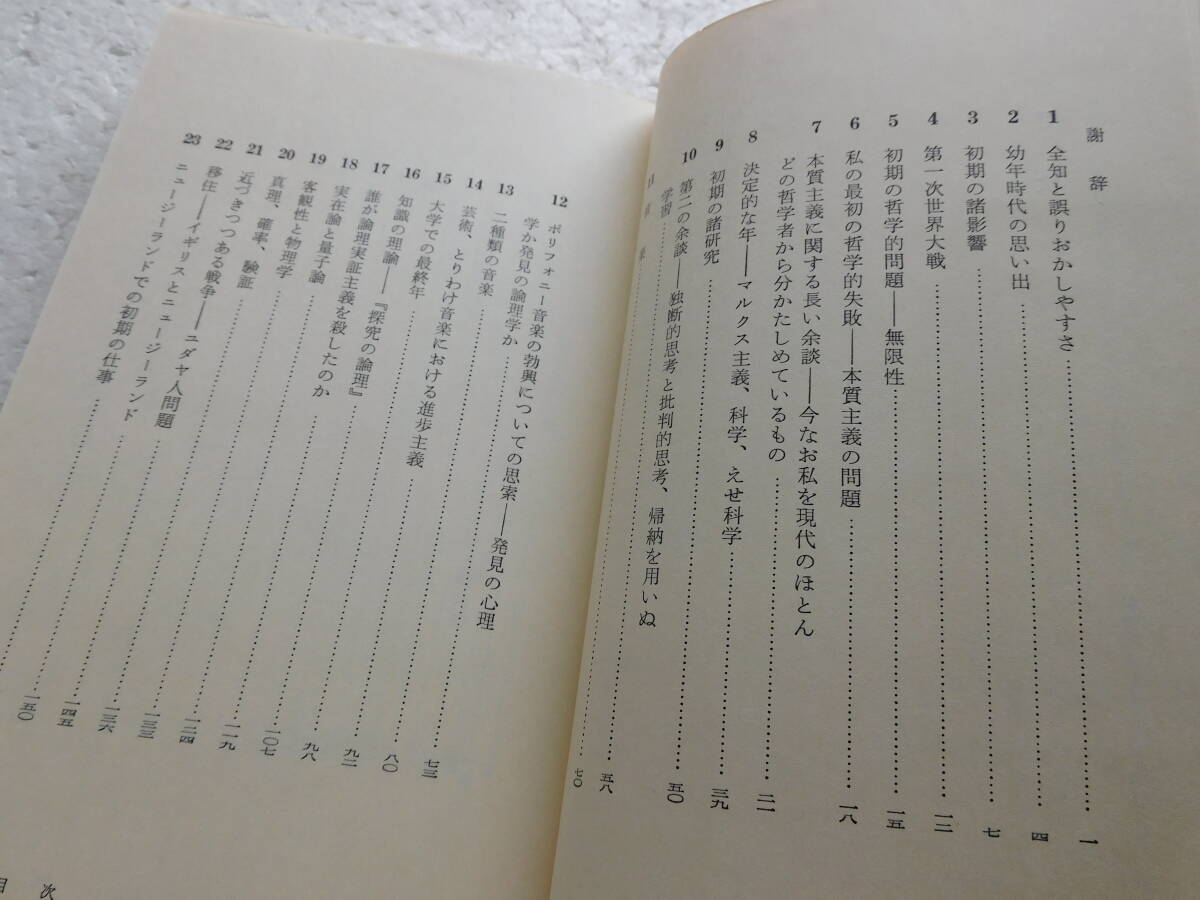 謝辞
1 全知と誤りおかしやすさ……一
2 幼年時代の思い出……四
3 初期の諸影響……七
4 第一次世界大戦……一二
5 初期の哲学的問題――無限性……一五
6 私の最初の哲学的失敗――本質主義の問題……一八
7 本質主義に関する長い余談――今なお私を現代のほとん
どの哲学者から分かたしめているもの……二一
8 決定的な年――マルクス主義、科学、えせ科学……三九
9 初期の諸研究……五〇
10 第二の余談――独断的思考と批判的思考、帰納を用いぬ
学習……五八
11 音楽……七〇
12 ポリフォニー音楽の勃興についての思索――発見の心理
学か発見の論理学か……七三
13 二種類の音楽……八〇
14 芸術、とりわけ音楽における進歩主義……九二
15 大学での最終年……九八
16 知識の理論――『探究の論理』……一〇七
17 誰が論理実証主義を殺したのか……一一九
18 実在論と量子論……一二四
19 客観性と物理学……一三三
20 真理、確率、験証……一三六
21 近づきつつある戦争――ユダヤ人問題……一四五
22 移住――イギリスとニュージーランド……一五〇
23 ニュージーランドでの初期の仕事……
目次